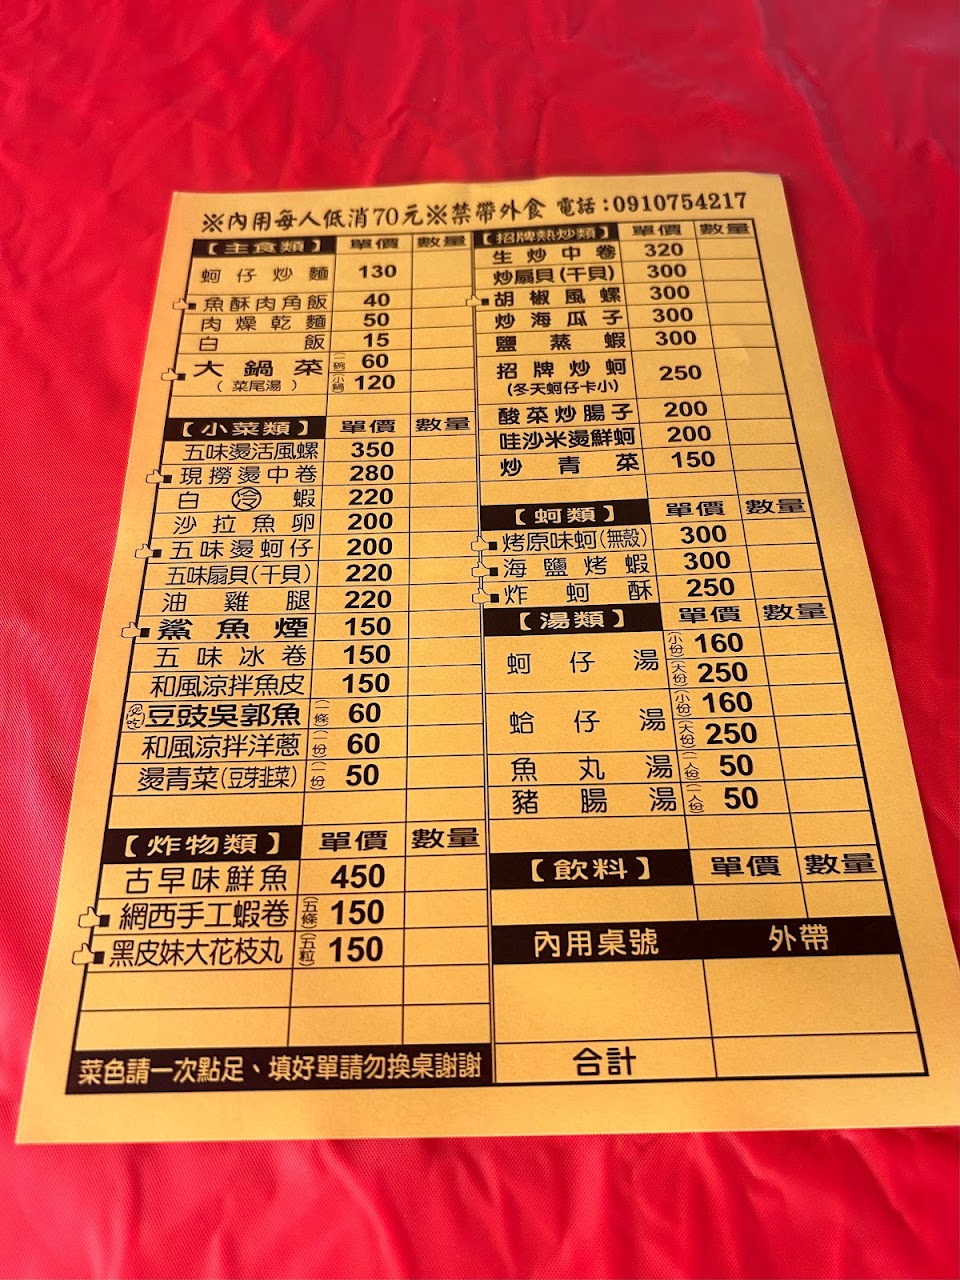 ※內用每人低消70元※禁帶外食 電話:0910754217
【主食類】 單價 數量
蚵仔炒麵 130
魚酥肉角飯 40
肉燥乾麵 50
白飯 15
大鍋菜 (一碗) 60
(菜尾湯) (小鍋) 120
【小菜類】 單價 數量
五味燙活風螺 350
現撈燙中卷 280
白冷蝦 220
沙拉魚卵 200
五味燙蚵仔 200
五味扇貝(干貝) 220
油雞腿 220
鯊魚煙 150
五味冰卷 150
和風涼拌魚皮 150
必吃 豆豉吳郭魚 (一條) 60
和風涼拌洋蔥 (一份) 60
燙青菜(豆芽韭菜) (一份) 50
【炸物類】 單價 數量
古早味鮮魚 450
網西手工蝦卷 (五條) 150
黑皮妹大花枝丸 (五粒) 150
菜色請一次點足、填好單請勿換桌謝謝
【招牌熱炒類】 單價 數量
生炒中卷 320
炒扇貝(干貝) 300
胡椒風螺 300
炒海瓜子 300
鹽蒸蝦 300
招牌炒蚵 250
(冬天蚵仔卡小)
酸菜炒腸子 200
哇沙米燙鮮蚵 200
炒青菜 150
【蚵類】 單價 數量
烤原味蚵(無殼) 300
海鹽烤蝦 300
炸蚵酥 250
【湯類】 單價 數量
蚵仔湯 (小份) 160
(大份) 250
蛤仔湯 (小份) 160
(大份) 250
魚丸湯 (一人份) 50
豬腸湯 (一人份) 50
【飲料】 單價 數量
內用桌號 外帶
合計